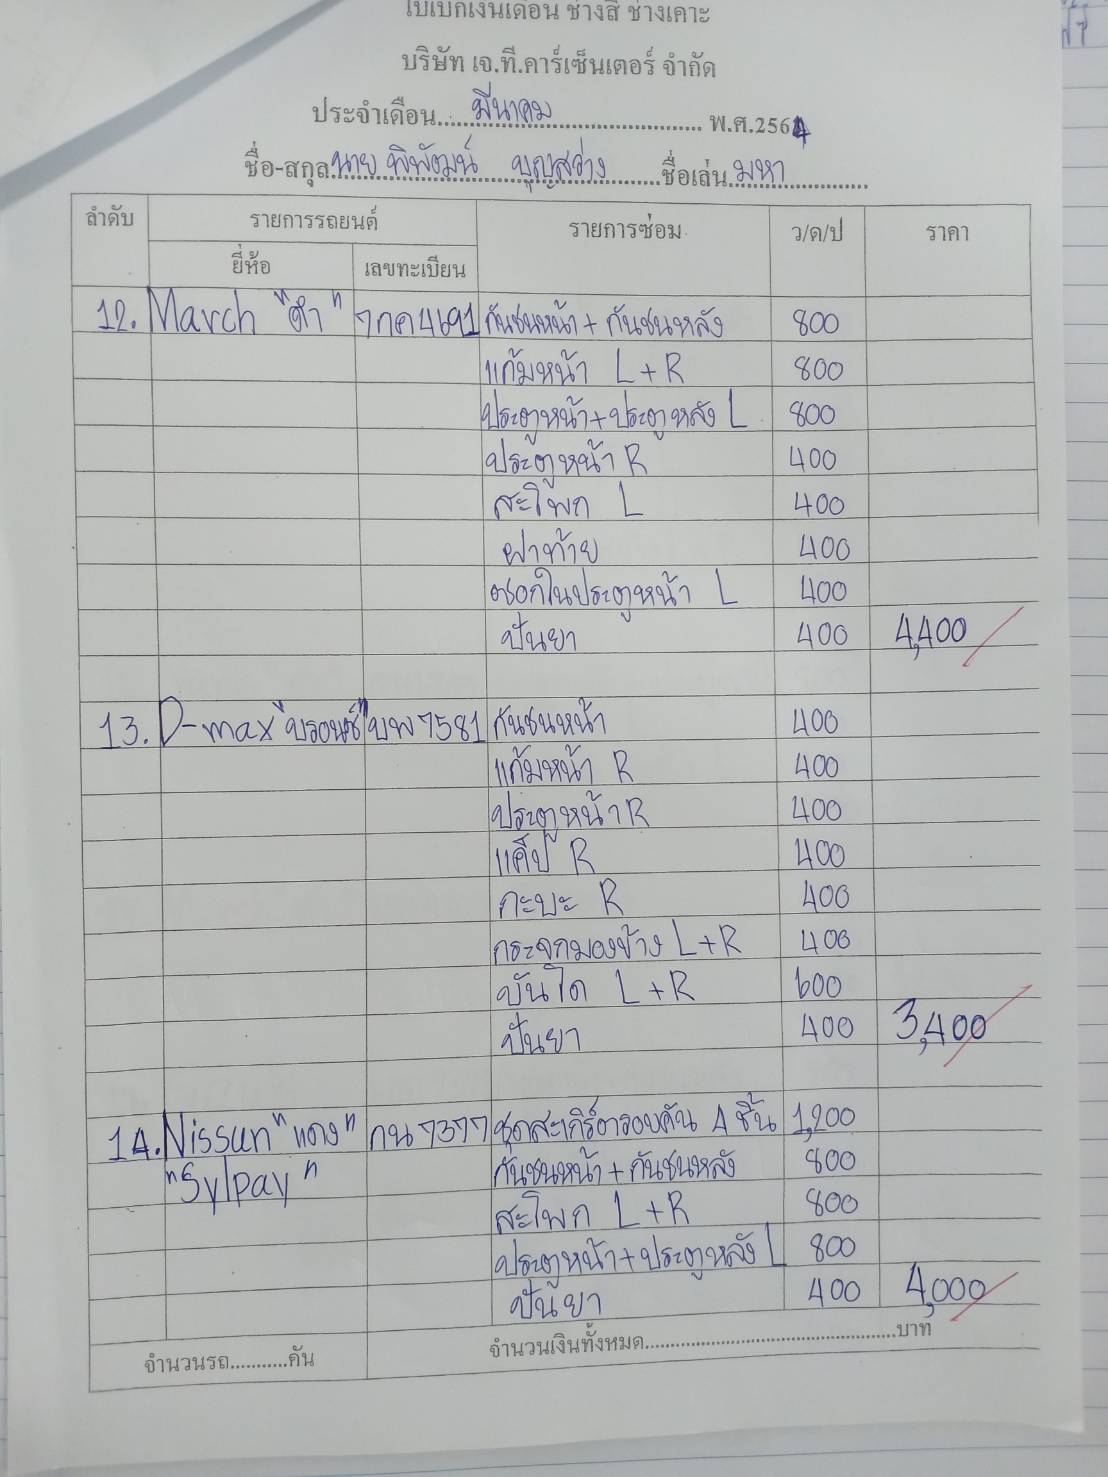 ใบเบิกเงินเดือน ช่างสี ช่างเคาะ
บริษัท เจ.ที.คาร์เซ็นเตอร์ จำกัด
ประจำเดือน....มีนาคม.... พ.ศ.2564
ชื่อ-สกุล.นาย พิพัฒน์ บุญสว่าง....ชื่อเล่น..มหา....
ลำดับ รายการรถยนต์ รายการซ่อม ว/ด/ป ราคา
ยี่ห้อ เลขทะเบียน
12. March "ดำ" 7กค4691 กันชนหน้า + กันชนหลัง 800
แก้มหน้า L+R 800
ประตูหน้า+ประตูหลัง L 800
ประตูหน้า R 400
สะโพก L 400
ฝาท้าย 400
ซอกในประตูหน้า L 400
ปั่นยา 400 4,400
13. D-max "บรอนซ์" บพ7581 กันชนหน้า 400
แก้มหน้า R 400
ประตูหน้า R 400
แค็ป R 400
กะบะ R 400
กระจกมองข้าง L+R 400
บันได L+R 600
ปั่นยา 400 3,400
14. Nissun "แดง" กน7377 ชุดสะเกิร์ตรอบคัน 4 ชิ้น 1,200
"Sylpay" กันชนหน้า + กันชนหลัง 800
สะโพก L+R 800
ประตูหน้า+ประตูหลัง L 800
ปั่นยา 400 4,000
จำนวนรถ...........คัน จำนวนเงินทั้งหมด....บาท